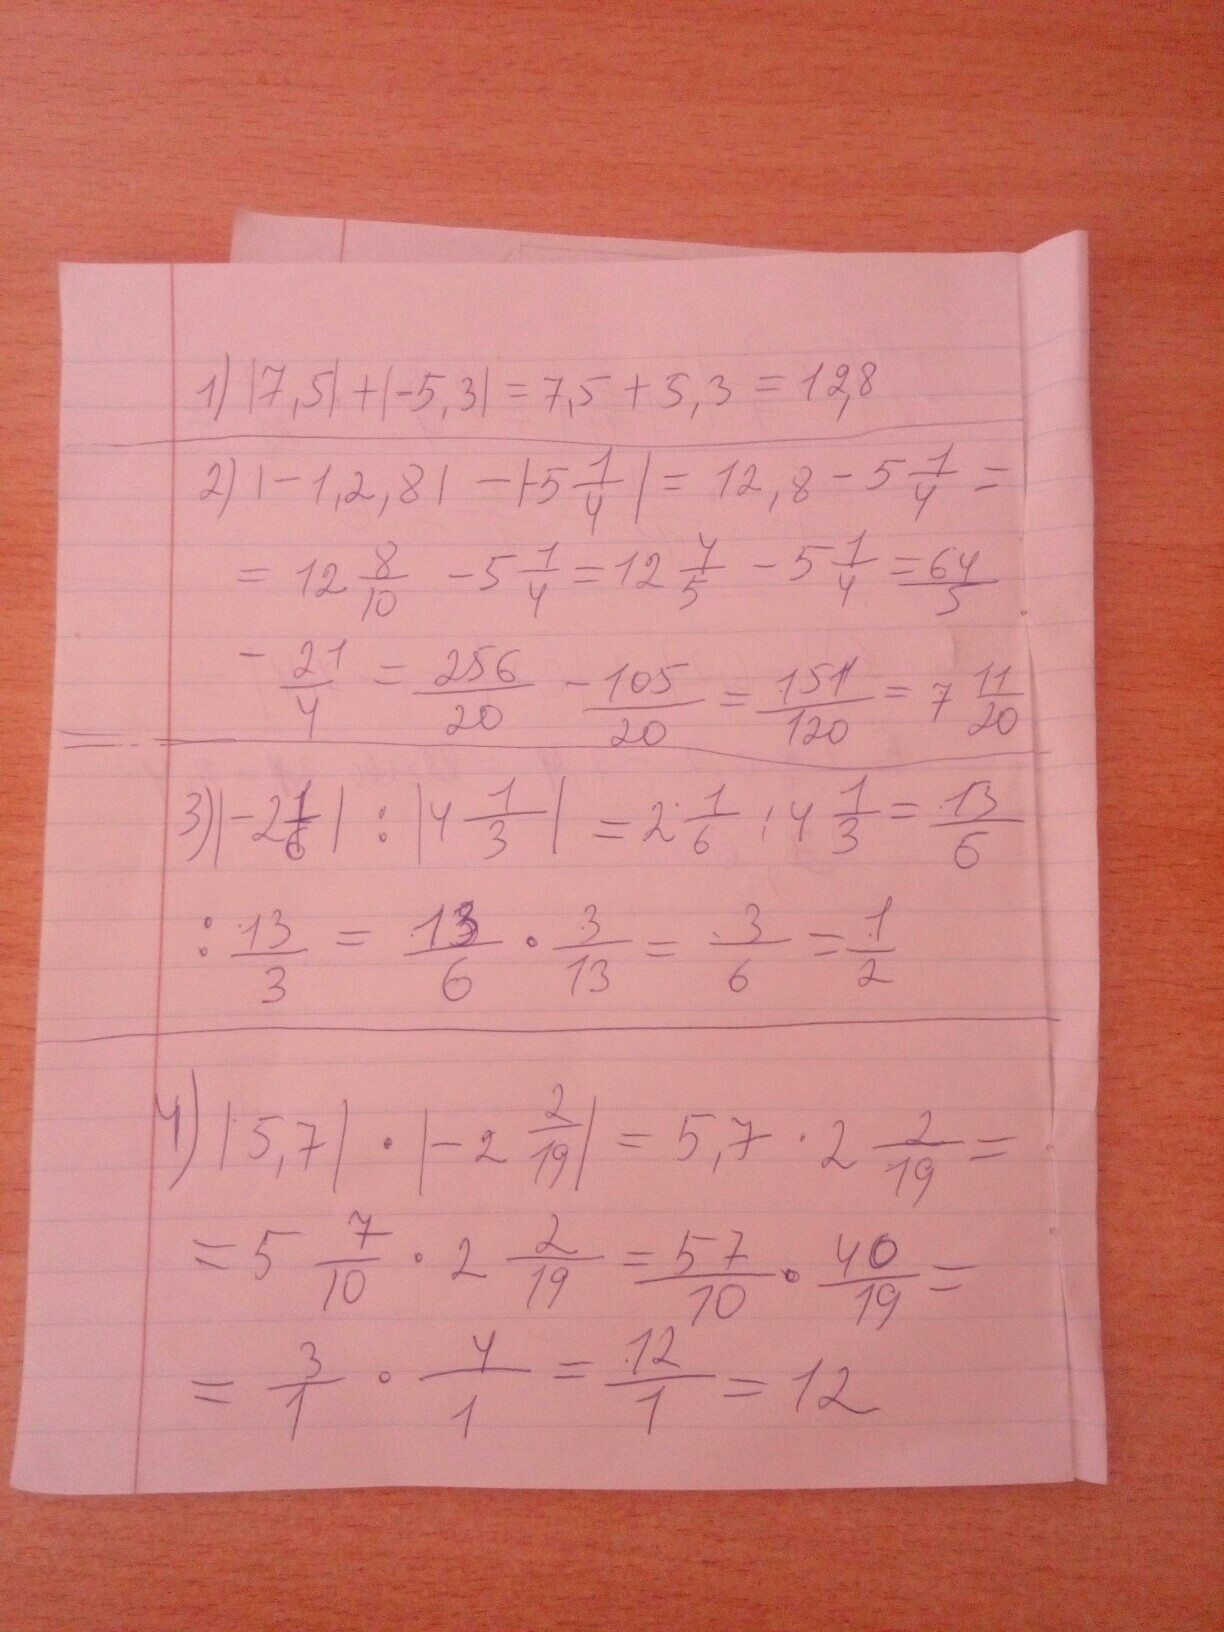 1) |7,5| + |-5,3| = 7,5 + 5,3 = 12,8
2) |-1,2,8| - |-5 1/4| = 12,8 - 5 1/4 =
= 12 8/10 - 5 1/4 = 12 4/5 - 5 1/4 = 64/5
- 21/4 = 256/20 - 105/20 = 151/120 = 7 11/20
3) |-2 1/6| : |4 1/3| = 2 1/6 : 4 1/3 = 13/6
: 13/3 = 13/6 · 3/13 = 3/6 = 1/2
4) |5,7| · |-2 2/19| = 5,7 · 2 2/19 =
= 5 7/10 · 2 2/19 = 57/10 · 40/19 =
= 3/1 · 4/1 = 12/1 = 12